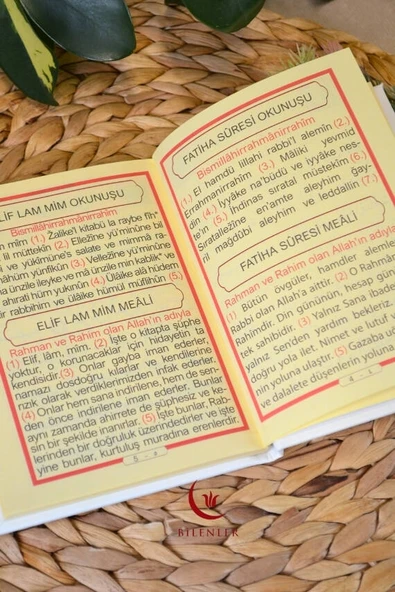 LİF LAM MİM OKUNUŞU
Bismillâhirrahmânirrahîm
mîm (1.) Zalikel kitabü la raybe fîh*
il müttekîn (2.) Ellezîne yü'minûne bil
i ve yükîmûne's salate ve mimmâ ra-
nâhüm yünfikûn (3.) Vellezîne yü'minûne bi
ma ünzile ileyke ve mâ ünzile min kablik* ve
l ahırati hüm yukınûn (4.) Ülâike alâ hüdem
ir rabbihim ve ülâike hümül müflihûn (5.)
ELİF LAM MİM MEÂLİ
Rahman ve Rahim olan Allah'ın adıyla
(1) Elif, lâm, mîm. (2) İşte o kitapta şüphe
yoktur, o korunacaklar için hidayetin ta
kendisidir. (3) Onlar gayba iman ederler,
namazı dosdoğru kılarlar ve kendilerine
rızık olarak verdiklerimizden infak ederler.
(4) Onlar hem sana indirilene, hem de sen-
den önce indirilene iman ederler. Bunlar
aynı zamanda ahirete de şüphesiz ve ke-
sin bir şekilde inanırlar. (5) İşte bunlar, Rab-
lerinden bir doğruluk üzerindedirler ve işte
yine bunlar, kurtuluş muradına erenlerdir.
- 5 -
FATİHA SÛRESİ OKUNUŞU
Bismillâhirrahmânirrahîm
(1.) El hamdü lillahi rabbi'l alemîn (2.)
Errahmanirrahîm (3.) Mâliki yevmid
dîn (4.) İyyake na'büdü ve iyyâke nes-
te'în (5.) İhdinas sıratal müstekîm (6.)
Sıratallezîne en'amte aleyhim ğay-
ril mağdûbi aleyhim ve leddallîn (7.)
FATİHA SÛRESİ MEÂLİ
Rahman ve Rahim olan Allah'ın adıyla
(1) Bütün övgüler, hamdler alemle
Rabbi olan Allah'a aittir. (2) O Rahmân
Rahîmdir. Din gününün, hesap gün
tek sahibidir. (3) Yalnız Sana ibade
yalnız Senden yardım bekleriz.
doğru yola ilet. Nimet ve lutuf
nin yoluna ulaştır. (5) Gazaba u
ve dalalete düşenlerin yoluna
- 4 -
BİLENLER